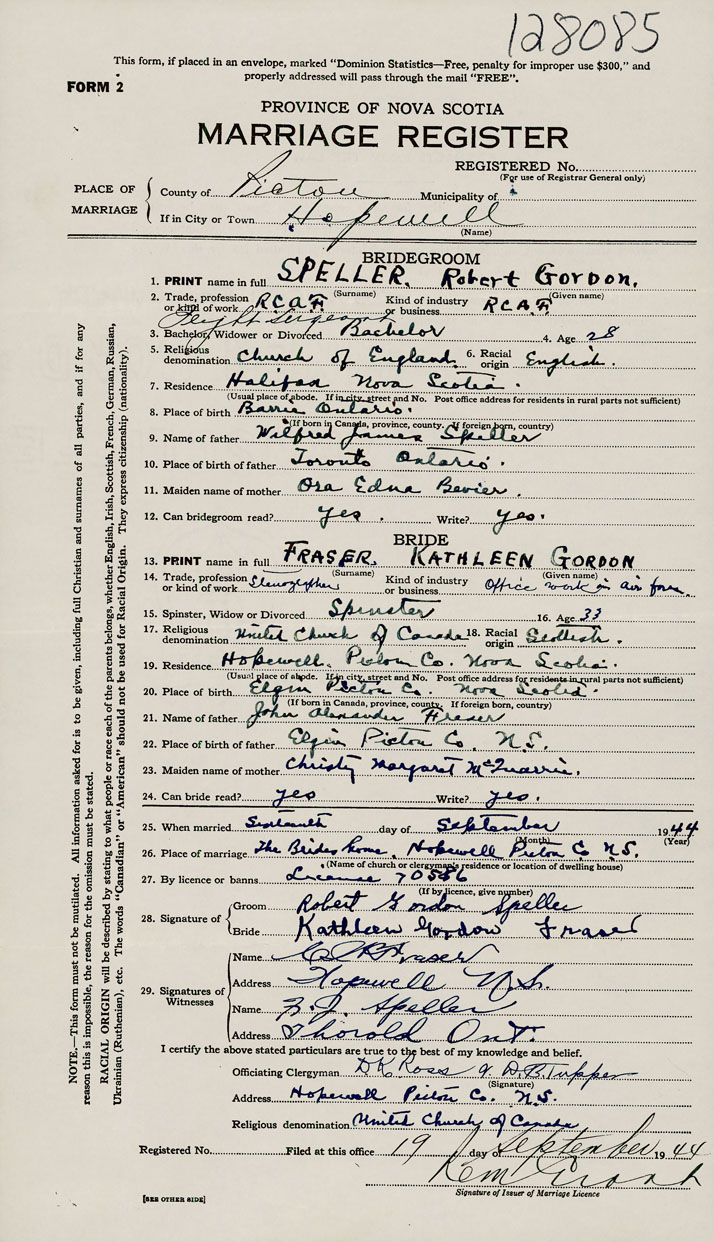 128085
This form, if placed in an envelope, marked "Dominion Statistics—Free, penalty for improper use $300," and
properly addressed will pass through the mail "FREE".
FORM 2
PROVINCE OF NOVA SCOTIA
MARRIAGE REGISTER
REGISTERED No.
(For use of Registrar General only)
PLACE OF MARRIAGE
County of Pictou Municipality of
If in City or Town Hopewell
(Name)
BRIDEGROOM
1. PRINT name in full SPELLER, Robert Gordon.
(Surname) (Given name)
2. Trade, profession or kind of work R.C.A.F. Flight Sergeant Kind of industry or business R.C.A.F.
3. Bachelor, Widower or Divorced Bachelor 4. Age 28
5. Religious denomination Church of England 6. Racial origin English.
7. Residence Halifax Nova Scotia.
(Usual place of abode. If in city, street and No. Post office address for residents in rural parts not sufficient)
8. Place of birth Barrie Ontario.
(If born in Canada, province, county. If foreign born, country)
9. Name of father Wilfred James Speller
10. Place of birth of father Toronto Ontario.
11. Maiden name of mother Ora Edna Bevier.
12. Can bridegroom read? yes. Write? yes.
BRIDE
13. PRINT name in full FRASER, KATHLEEN GORDON
(Surname) (Given name)
14. Trade, profession or kind of work Stenographer Kind of industry or business Office work in air force
15. Spinster, Widow or Divorced Spinster 16. Age 33
17. Religious denomination United Church of Canada 18. Racial origin Scottish.
19. Residence Hopewell, Pictou Co. Nova Scotia.
(Usual place of abode. If in city, street and No. Post office address for residents in rural parts not sufficient)
20. Place of birth Elgin Pictou Co. Nova Scotia.
(If born in Canada, province, county. If foreign born, country)
21. Name of father John Alexander Fraser
22. Place of birth of father Elgin Pictou Co. N.S.
23. Maiden name of mother Christy Margaret McQuarrie.
24. Can bride read? yes Write? yes.
25. When married day of September 1944
(Month) (Year)
26. Place of marriage The Brides home, Hopewell Pictou Co N.S.
(Name of church or clergyman's residence or location of dwelling house)
27. By licence or banns License 70586
(If by licence, give number)
28. Signature of
Groom Robert Gordon Speller
Bride Kathleen Gordon Fraser
29. Signatures of Witnesses
Name Fraser
Address Hopewell N.S.
Name F. J. Speller
Address Thorold Ont.
I certify the above stated particulars are true to the best of my knowledge and belief.
Officiating Clergyman D K Ross & D.B. Tupper
(Signature)
Address Hopewell Pictou Co. N.S.
Religious denomination United Church of Canada
Registered No. Filed at this office 19 day of September 1944
Signature of Issuer of Marriage Licence
[SEE OTHER SIDE]
NOTE.—This form must not be mutilated. All information asked for is to be given, including full Christian and surnames of all parties, and if for any
reason this is impossible, the reason for the omission must be stated.
RACIAL ORIGIN will be described by stating to what people or race each of the parents belongs, whether English, Irish, Scottish, French, German, Russian,
Ukrainian (Ruthenian), etc. The words "Canadian" or "American" should not be used for Racial Origin. They express citizenship (nationality).